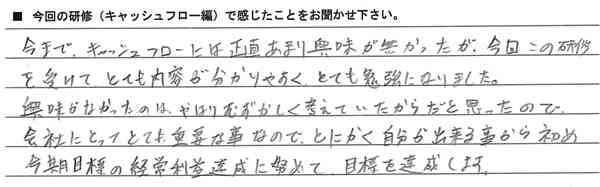 ■ 今回の研修（キャッシュフロー編）で感じたことをお聞かせ下さい。
今まで、キャッシュフローには正直あまり興味が無かったが、今回この研修
を受けて、とても内容が分かりやすく、とても勉強になりました。
興味がなかったのは、やはりむずかしく考えていたからだと思ったので、
会社にとってとても重要な事なので、とにかく自分が出来る事から初め
今期目標の経常利益達成に努めて、目標を達成します。